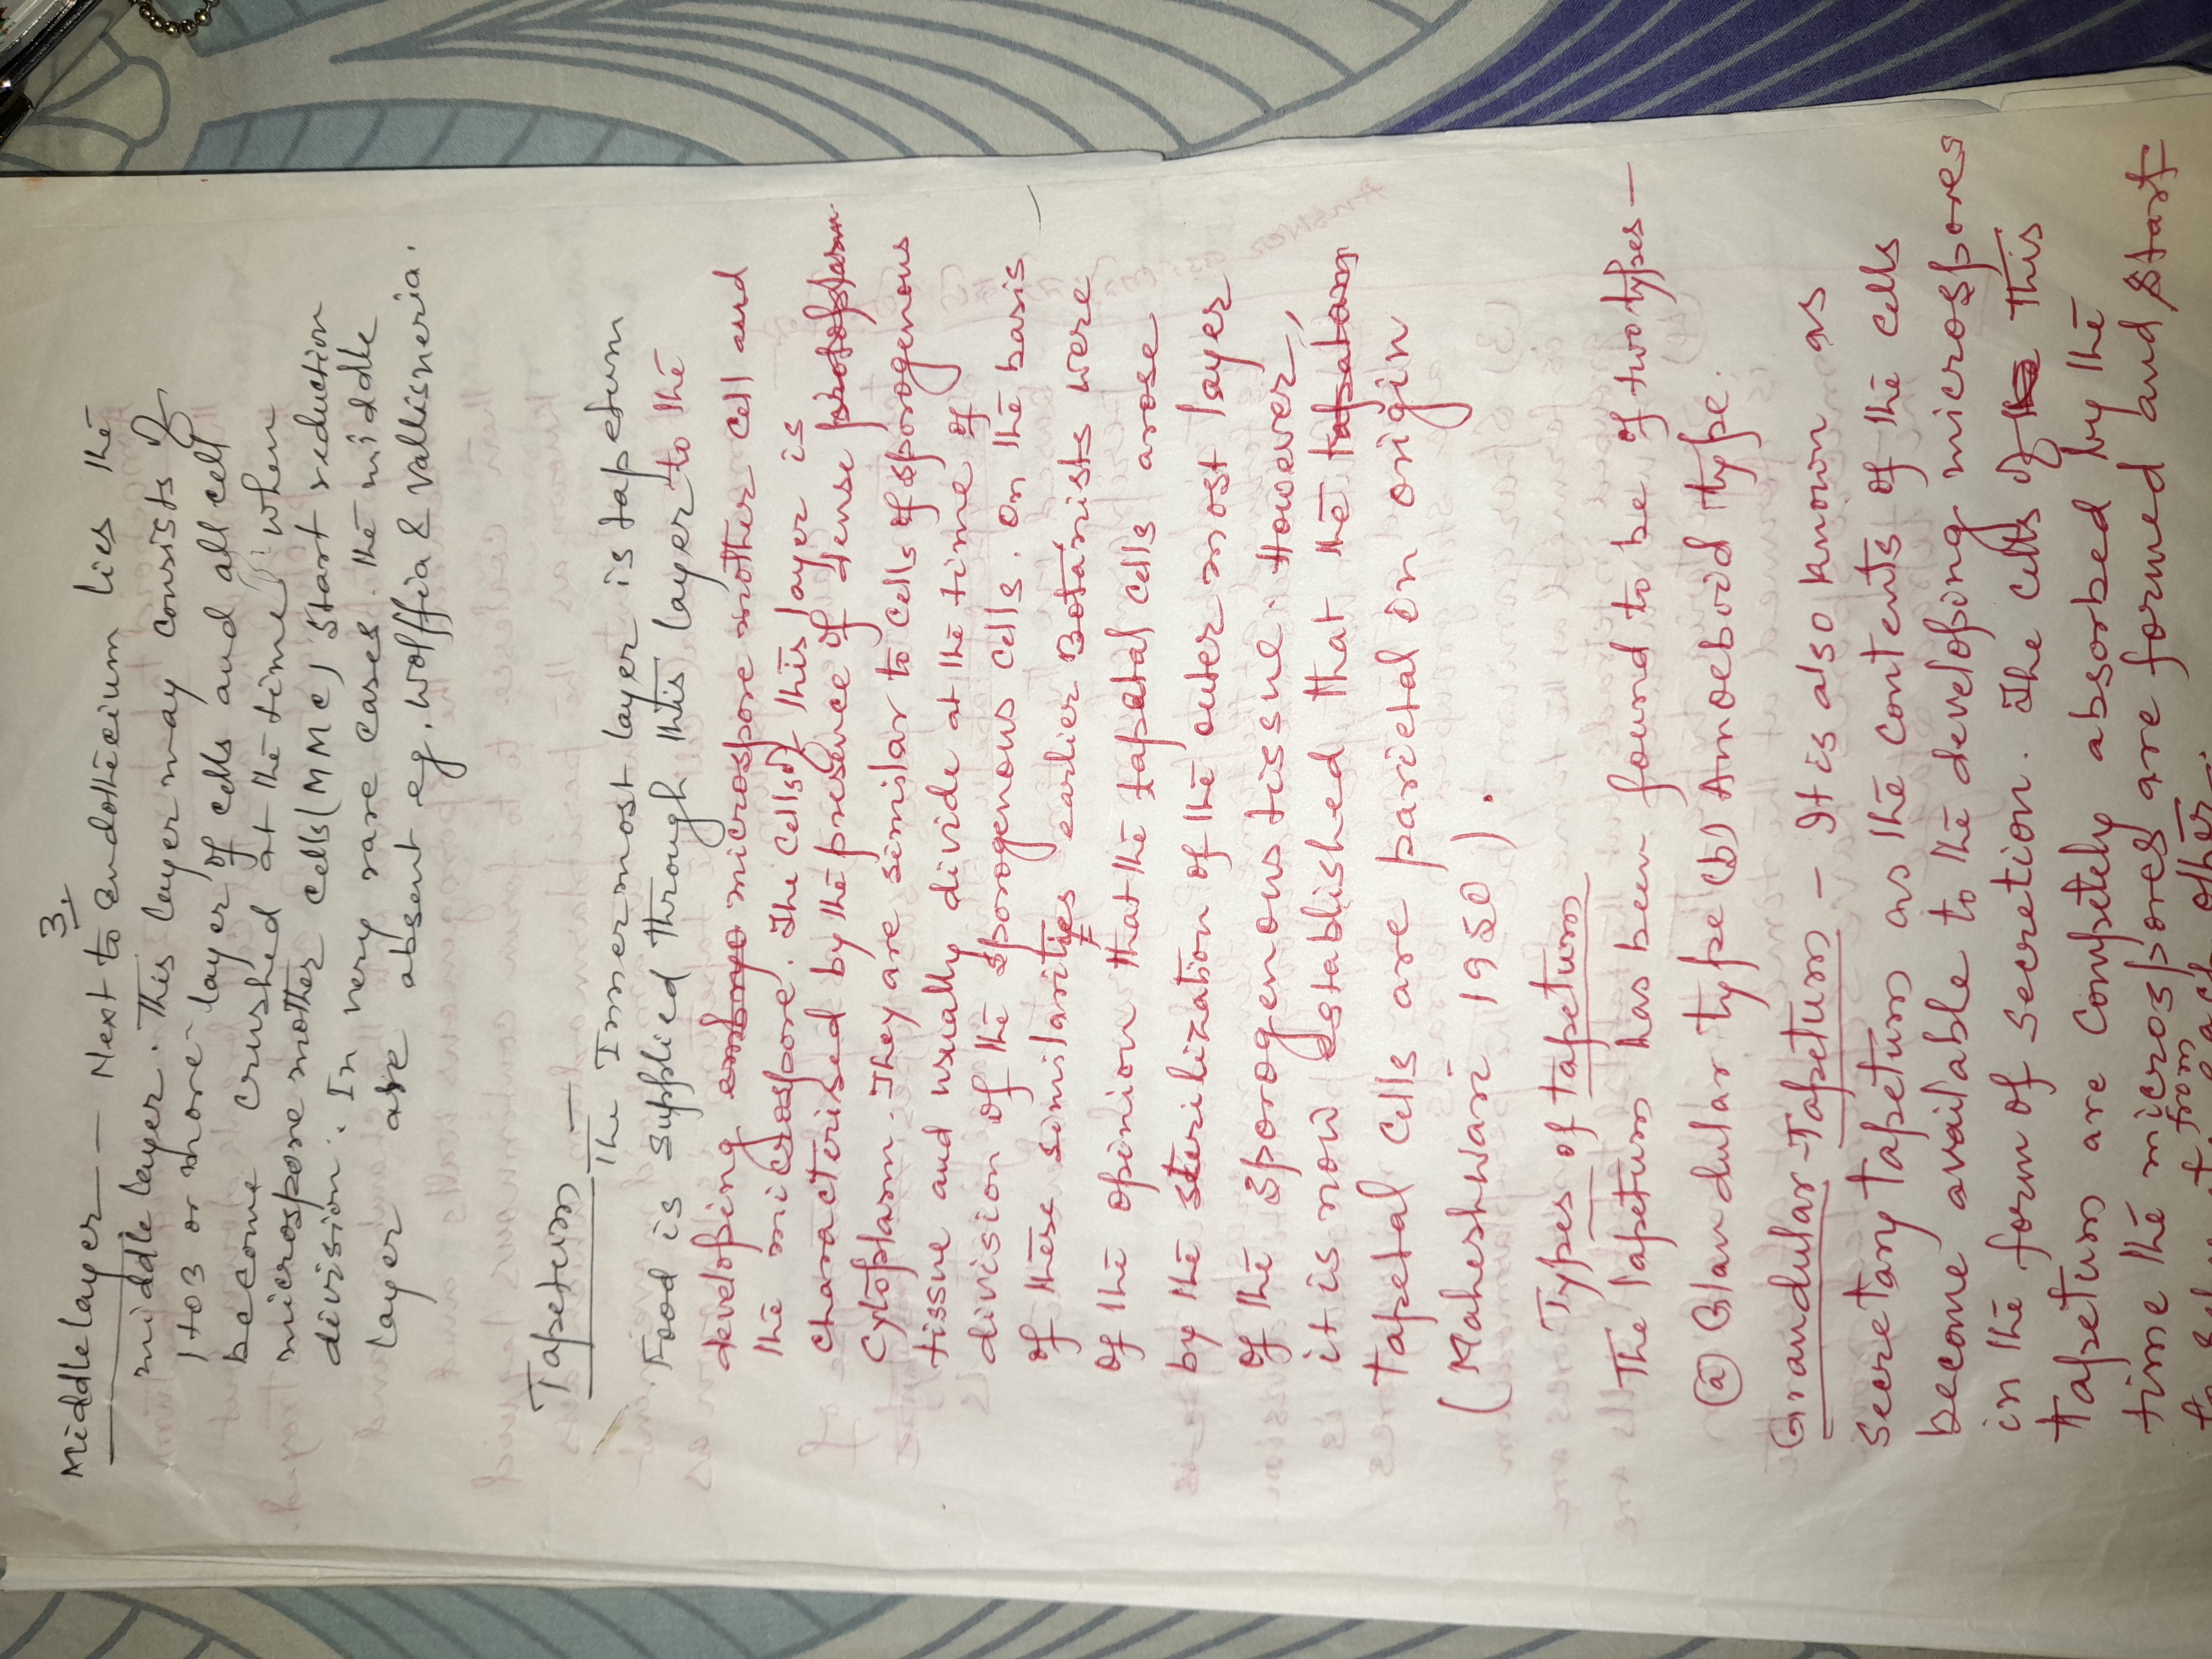 3.
Middle layer — Next to endothecium lies the
middle layer. This layer may consists of
1 to 3 or more layer of cells and all cell
become crushed at the time when
microspore mother cells (MMC) start reduction
division. In very rare cases the middle
layer are absent eg. wolffia & vallisneria.
Tapetum — The Innermost layer is tapetum
Food is supplied through this layer to the
developing embryo microspore mother cell and
the microspore. The cells of this layer is
characterised by the presence of dense protoplasm
cytoplasm. They are similar to cells of sporogenous
tissue and usually divide at the time of
division of the sporogenous cells. On the basis
of these similarities earlier Botanists were
of the opinion that the tapetal cells arose
by the sterilization of the outer most layer
of the sporogenous tissue. However,
it is now established that the tapetum
tapetal cells are parietal in origin
(Maheshwari 1950).
Types of tapetum
The tapetum has been found to be of two types —
(a) Glandular type (b) Amoeboid type.
Grandular Tapetum — It is also known as
secretary tapetum as the contents of the cells
become available to the developing microspores
in the form of secretion. The cells of this
tapetum are completely absorbed by the
time the microspores are formed and start
from each other.